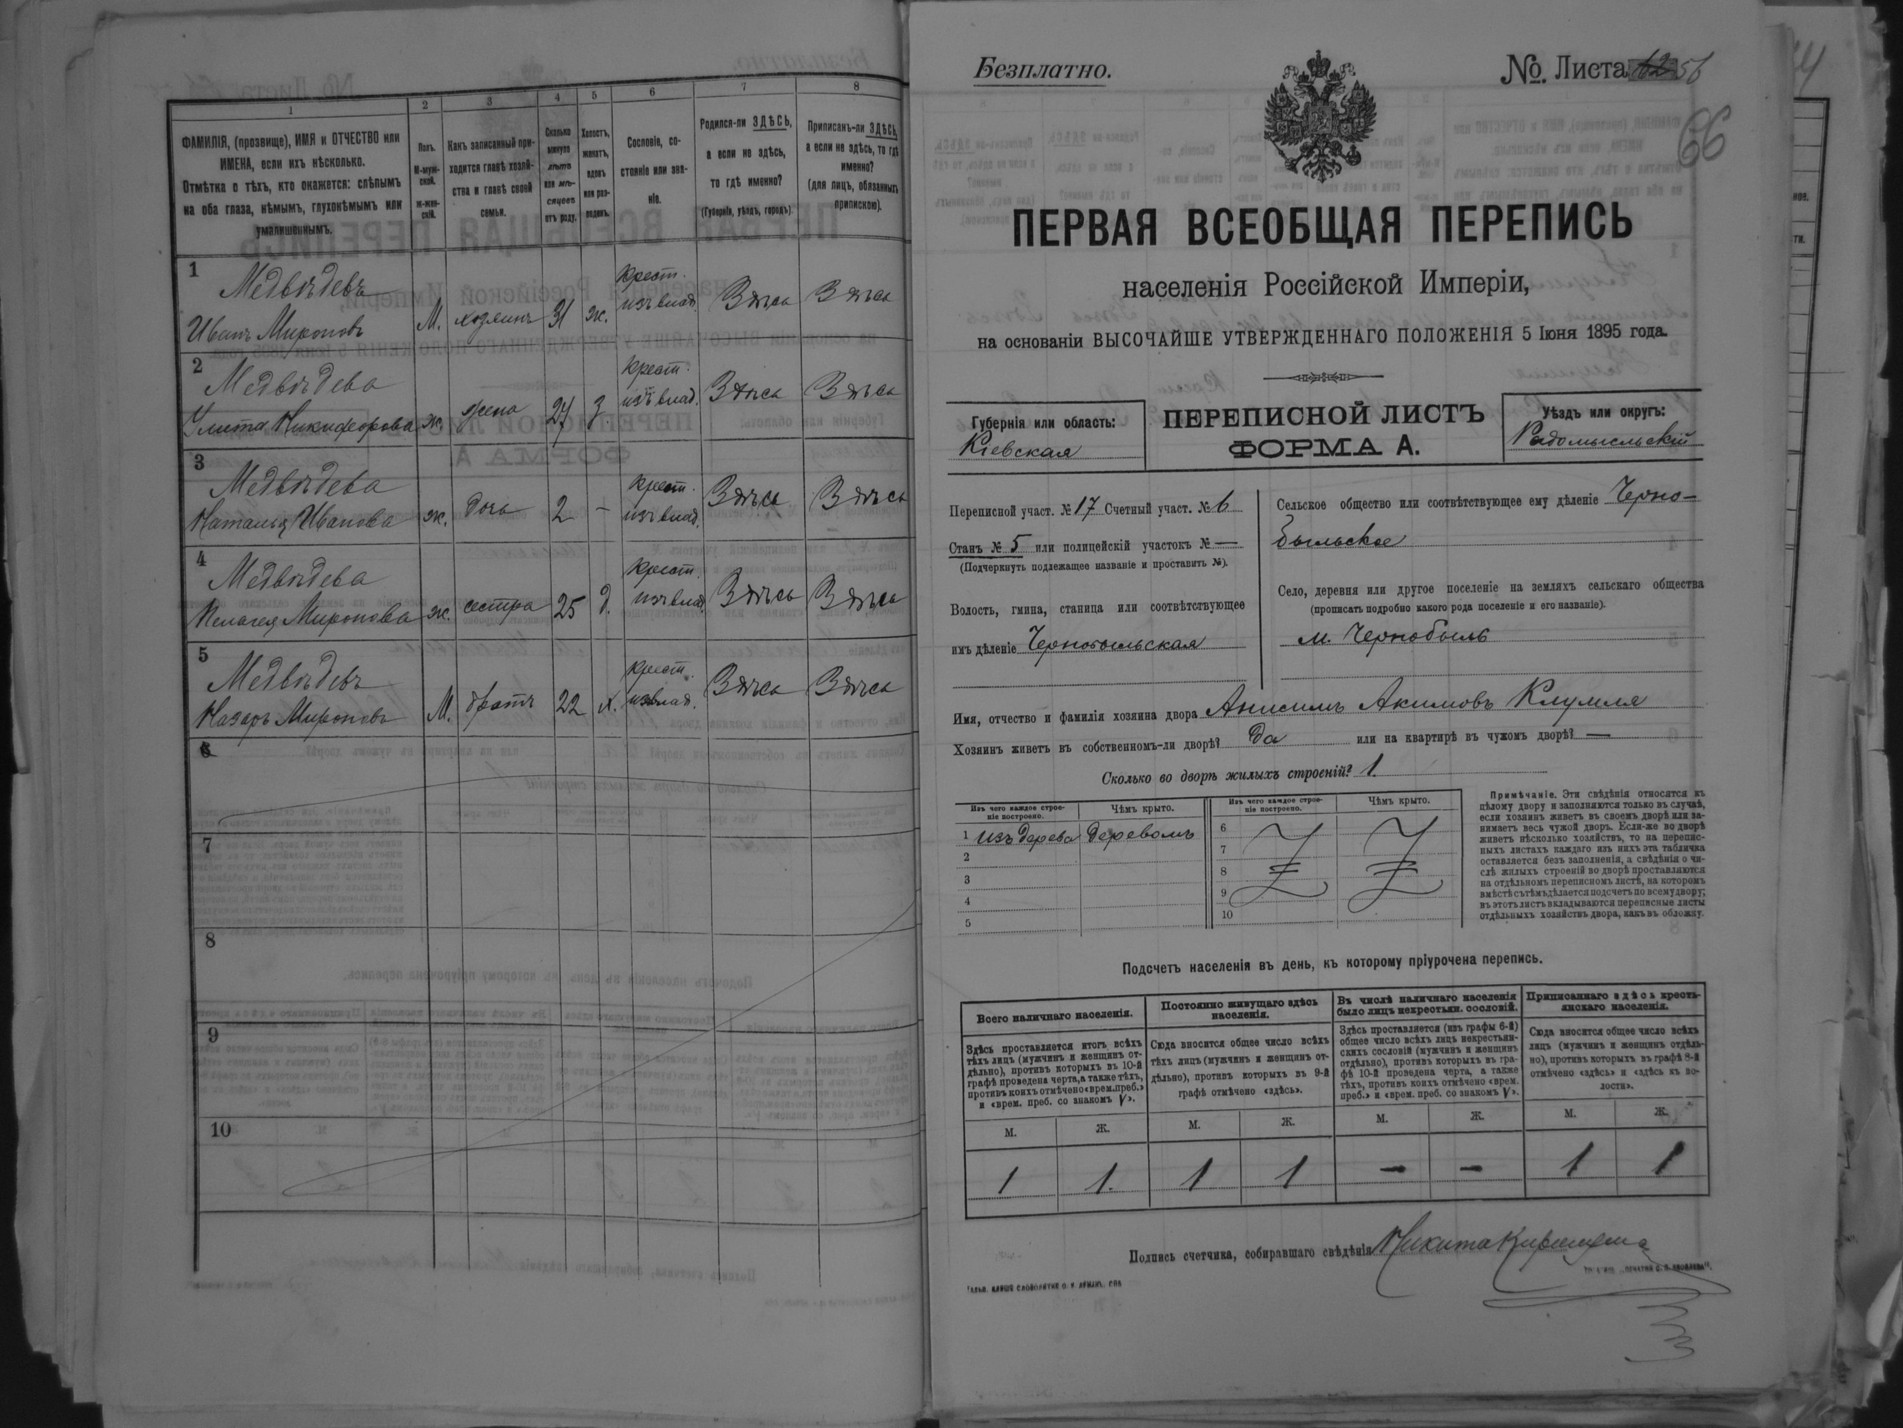 1
2
3
4
5
6
7
8
ФАМИЛІЯ, (прозвище), ИМЯ и ОТЧЕСТВО или
ИМЕНА, если ихъ нѣсколько.
Отмѣтка о тѣхъ, кто окажется: слѣпымъ
на оба глаза, нѣмымъ, глухонѣмымъ или
умалишеннымъ.
Полъ.
М-муж-
ской.
Ж-жен-
скій.
Какъ записанный при-
ходится главѣ хозяй-
ства и главѣ своей
семьи.
Сколько
минуло
лѣтъ
или мѣ-
сяцевъ
отъ роду.
Холостъ,
женатъ,
вдовъ
или раз-
веденъ.
Сословіе, со-
стояніе или зва-
ніе.
Родился-ли ЗДѢСЬ,
а если не здѣсь,
то гдѣ именно?
(Губернія, уѣздъ, городъ).
Приписанъ-ли ЗДѢСЬ,
а если не здѣсь, то гдѣ
именно?
(для лицъ, обязанныхъ
припискою).
1
Медвѣдевъ
Иванъ Мироновъ
М.
хозяинъ
31
ж.
Крест.
изъ влад.
Здѣсь
Здѣсь
2
Медвѣдева
Улита Никифорова
ж.
жена
27
з.
Крест.
изъ влад.
Здѣсь
Здѣсь
3
Медвѣдева
Наталья Иванова
ж.
дочь
2
-
Крест.
изъ влад.
Здѣсь
Здѣсь
4
Медвѣдева
Пелагея Миронова
ж.
сестра
25
д.
Крест.
изъ влад.
Здѣсь
Здѣсь
5
Медвѣдевъ
Назаръ Мироновъ
М.
братъ
22
х.
Крест.
изъ влад.
Здѣсь
Здѣсь
6
7
8
9
10
Безплатно.
№ Листа 62 56
66
ПЕРВАЯ ВСЕОБЩАЯ ПЕРЕПИСЬ
населенія Россійской Имперіи,
на основаніи ВЫСОЧАЙШЕ УТВЕРЖДЕННАГО ПОЛОЖЕНІЯ 5 Іюня 1895 года.
Губернія или область:
Кіевская
ПЕРЕПИСНОЙ ЛИСТЪ
ФОРМА А.
Уѣздъ или округъ:
Радомысльскій
Переписной участ. № 17 Счетный участ. № 6
Станъ № 5 или полицейскій участокъ № —
(Подчеркнуть подлежащее названіе и проставить №).
Волость, гмина, станица или соотвѣтствующее
имъ дѣленіе Чернобыльская
Сельское общество или соотвѣтствующее ему дѣленіе Черно-
быльское
Село, деревня или другое поселеніе на земляхъ сельскаго общества
(прописать подробно какого рода поселеніе и его названіе).
м. Чернобыль
Имя, отчество и фамилія хозяина двора Анисимъ Акимовъ
Хозяинъ живетъ въ собственномъ-ли дворѣ? Да или на квартирѣ въ чужомъ дворѣ? —
Сколько во дворѣ жилыхъ строеній? 1
Изъ чего каждое строе-
ніе построено.
Чѣмъ крыто.
Изъ чего каждое строе-
ніе построено.
Чѣмъ крыто.
1 изъ дерева деревомъ
2
3
4
5
6
7
8
9
10
Примѣчаніе. Эти свѣдѣнія относятся къ
цѣлому двору и заполняются только въ случаѣ,
если хозяинъ живетъ въ своемъ дворѣ или за-
нимаетъ весь чужой дворъ. Если-же во дворѣ
живетъ нѣсколько хозяйствъ, то на перепис-
ныхъ листахъ каждаго изъ нихъ эта табличка
оставляется безъ заполненія, а свѣдѣнія о чи-
слѣ жилыхъ строеній во дворѣ проставляются
на отдѣльномъ переписномъ листѣ, на которомъ
вмѣстѣ съ тѣмъ дѣлается подсчетъ по всему двору;
въ этотъ листъ вкладываются переписные листы
отдѣльныхъ хозяйствъ двора, какъ въ обложку.
Подсчетъ населенія въ день, къ которому пріурочена перепись.
Всего наличнаго населенія.
Здѣсь проставляется итогъ всѣхъ
тѣхъ лицъ (мужчинъ и женщинъ от-
дѣльно), противъ которыхъ въ 10-й
графѣ проведена черта, а также тѣхъ,
противъ коихъ отмѣчено «врем. преб.»
и «врем. преб. со знакомъ V».
Постоянно живущаго здѣсь
населенія.
Сюда вносится общее число всѣхъ
тѣхъ лицъ (мужчинъ и женщинъ от-
дѣльно), противъ которыхъ въ 9-й
графѣ отмѣчено «здѣсь».
Въ числѣ наличнаго населенія
было лицъ некрестьян. сословій.
Здѣсь проставляется (изъ графы 6-й)
общее число всѣхъ лицъ некрестьян-
скихъ сословій (мужчинъ и женщинъ
отдѣльно), противъ которыхъ въ гра-
фѣ 10-й проведена черта, а также
тѣхъ, противъ коихъ отмѣчено «врем.
преб.» и «врем. преб. со знакомъ V».
Приписаннаго здѣсь кресть-
янскаго населенія.
Сюда вносится общее число всѣхъ
лицъ (мужчинъ и женщинъ отдѣль-
но), противъ которыхъ въ графѣ 8-й
отмѣчено «здѣсь» и «здѣсь къ во-
лости».
М. Ж. М. Ж. М. Ж. М. Ж.
1 1. 1 1 - - 1 1
Подпись счетчика, собиравшаго свѣдѣнія Никита